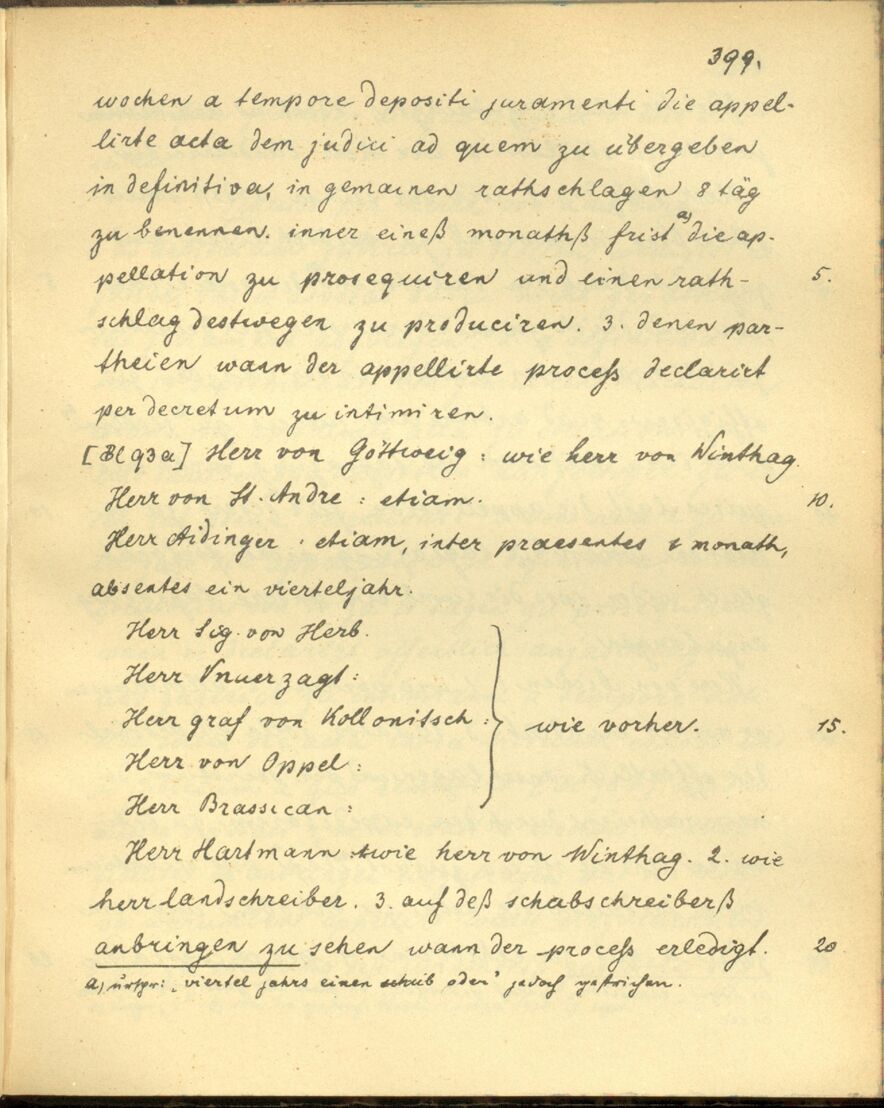 399.
wochen a tempore depositi juramenti die appel-
lirte acta dem judici ad quem zu übergeben
in definitiva, in gemainen rathschlagen 8 täg
zu benennen. inner eineß monathß frist a) die ap-
pellation zu prosequiren und einen rath- 5.
schlag destwegen zu produciren. 3. denen par-
theien wann der appellirte process declarirt
per decretum zu intimiren.
[Bl 93a] Herr von Göttweig: wie herr von Winthag.
Herr von St. Andre: etiam. 10.
Herr Aidinger: etiam, inter praesentes 1 monath,
absentes ein vierteljahr.
Herr Sig. von Herb.
Herr Vnuerzagt:
Herr graf von Kollonitsch: wie vorher. 15.
Herr von Oppel:
Herr Brassican:
Herr Hartmann: wie herr von Winthag. 2. wie
herr landschreiber. 3. auf deß schabschreiberß
anbringen zu sehen wann der process erledigt. 20
a) urspr: „viertel jahrs einen schub oder" jedoch gestrichen.